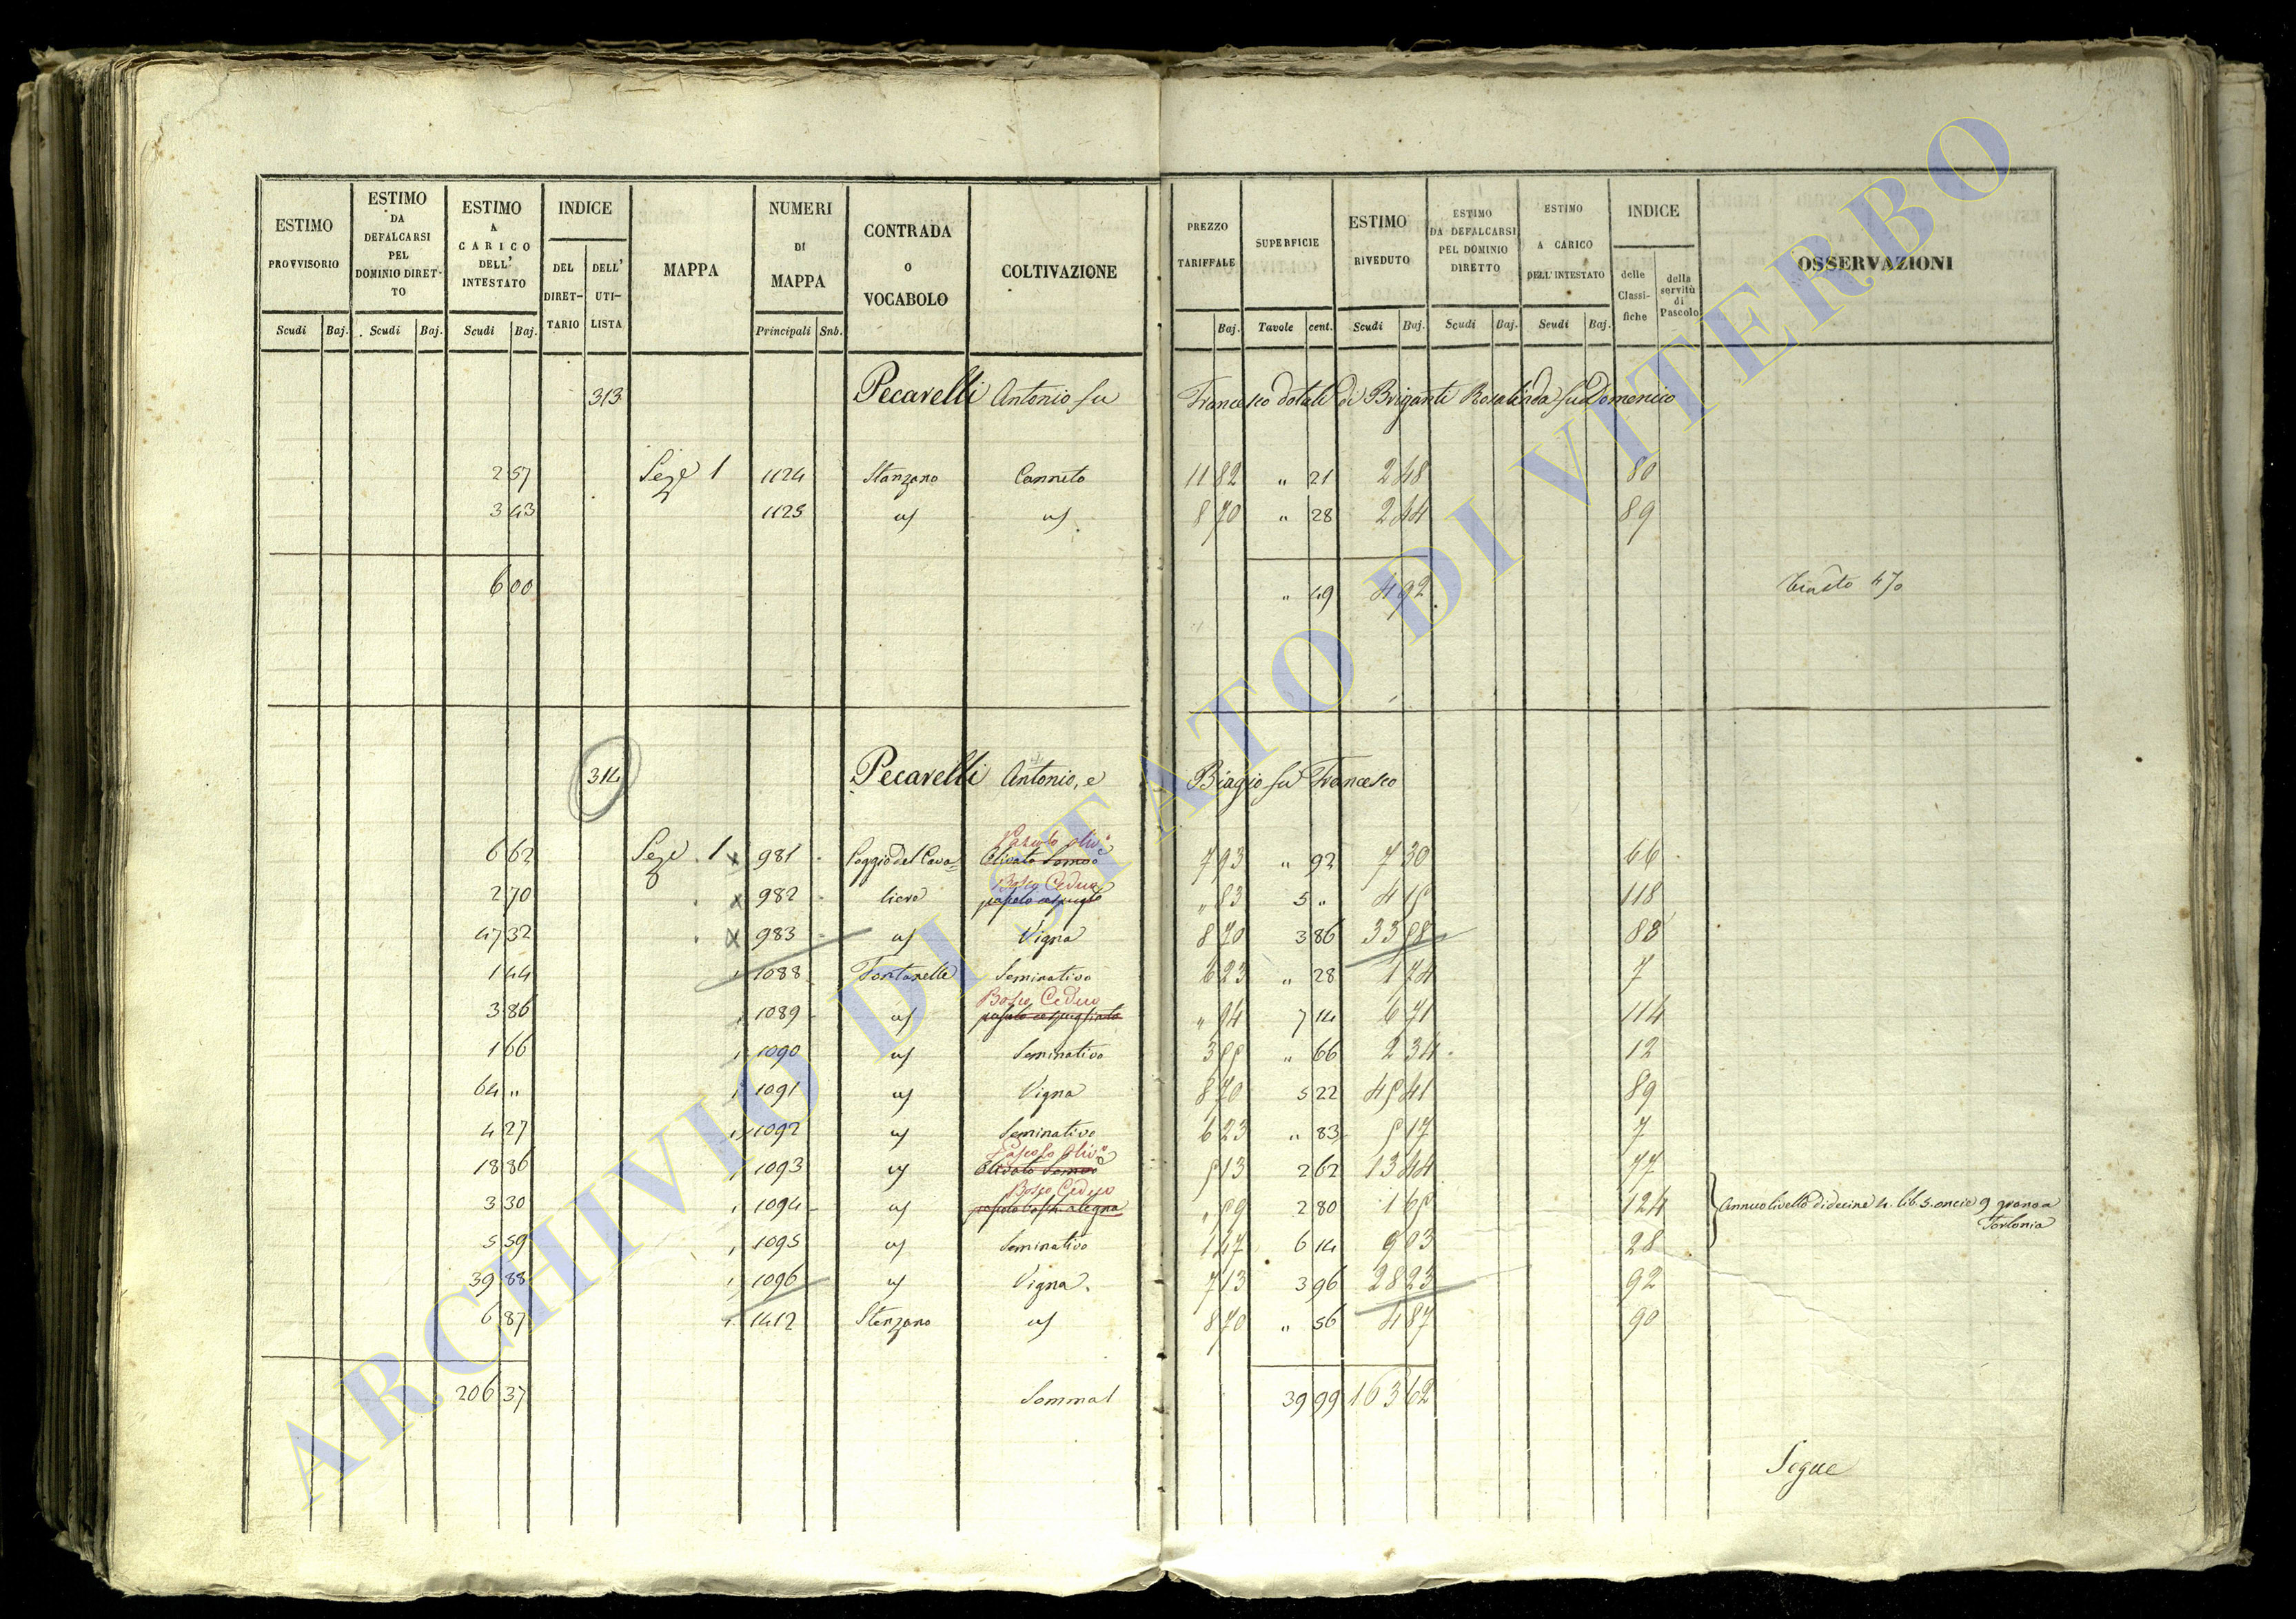 ESTIMO PROVVISORIO | ESTIMO DA DEFALCARSI PEL DOMINIO DIRETTO | ESTIMO A CARICO DELL' INTESTATO | INDICE | MAPPA | NUMERI DI MAPPA | CONTRADA O VOCABOLO | COLTIVAZIONE | PREZZO TARIFFALE | SUPERFICIE | ESTIMO RIVEDUTO | ESTIMO DA DEFALCARSI PEL DOMINIO DIRETTO | ESTIMO A CARICO DELL' INTESTATO | INDICE | OSSERVAZIONI
DEL DIRETTARIO | DELL' UTILISTA | delle Classifiche | della servitù di Pascolo
Scudi | Baj. | Scudi | Baj. | Scudi | Baj. | Principali | Snb. | Baj. | Tavole | cent. | Scudi | Baj. | Scudi | Baj. | Scudi | Baj.
313 Pecarelli Antonio fu Francesco dotali di Briganti Rosalinda fu Domenico
2 57 Seze 1 1124 Stanzano Canneto 11 82 " 21 2 48 80
3 43 1125 " 8 70 " 28 2 44 89
6 00 " 49 4 92
314 Pecarelli Antonio, e Biagio fu Francesco
Pascolo oliv.o
6 62 Seze 1 x 981 Poggio del Cava= Olivato 7 93 " 92 7 30 66
Bosco Ceduo
2 70 x 982 liere pascolo " 83 5 " 4 15 118
47 32 x 983 Vigna 8 70 3 86 33 58 88
1 44 1088 Fontanelle Seminativo 6 23 " 28 1 74 7
Bosco Ceduo
3 86 1089 pascolo cespugliato " 94 7 14 6 71 114
1 66 1090 Seminativo 3 55 " 66 2 34 12
64 " 1091 Vigna 8 70 5 22 45 41 89
4 27 1092 Seminativo 6 23 " 83 5 17 7
Pascolo oliv.o
18 86 1093 Olivato 5 13 2 62 13 44 77
Bosco Ceduo
3 30 1094 " 59 2 80 1 65 124 Annuo livello di decine 4. lib. 5. oncie 9 grano a
Torlonia
5 59 1095 Seminativo 1 47 6 14 9 03 28
39 88 1096 Vigna. 7 13 3 96 28 23 92
6 87 1412 Stanzano 8 70 " 56 4 87 90
206 37 Somma 39 99 163 62
Segue
ARCHIVIO DI STATO DI VITERBO